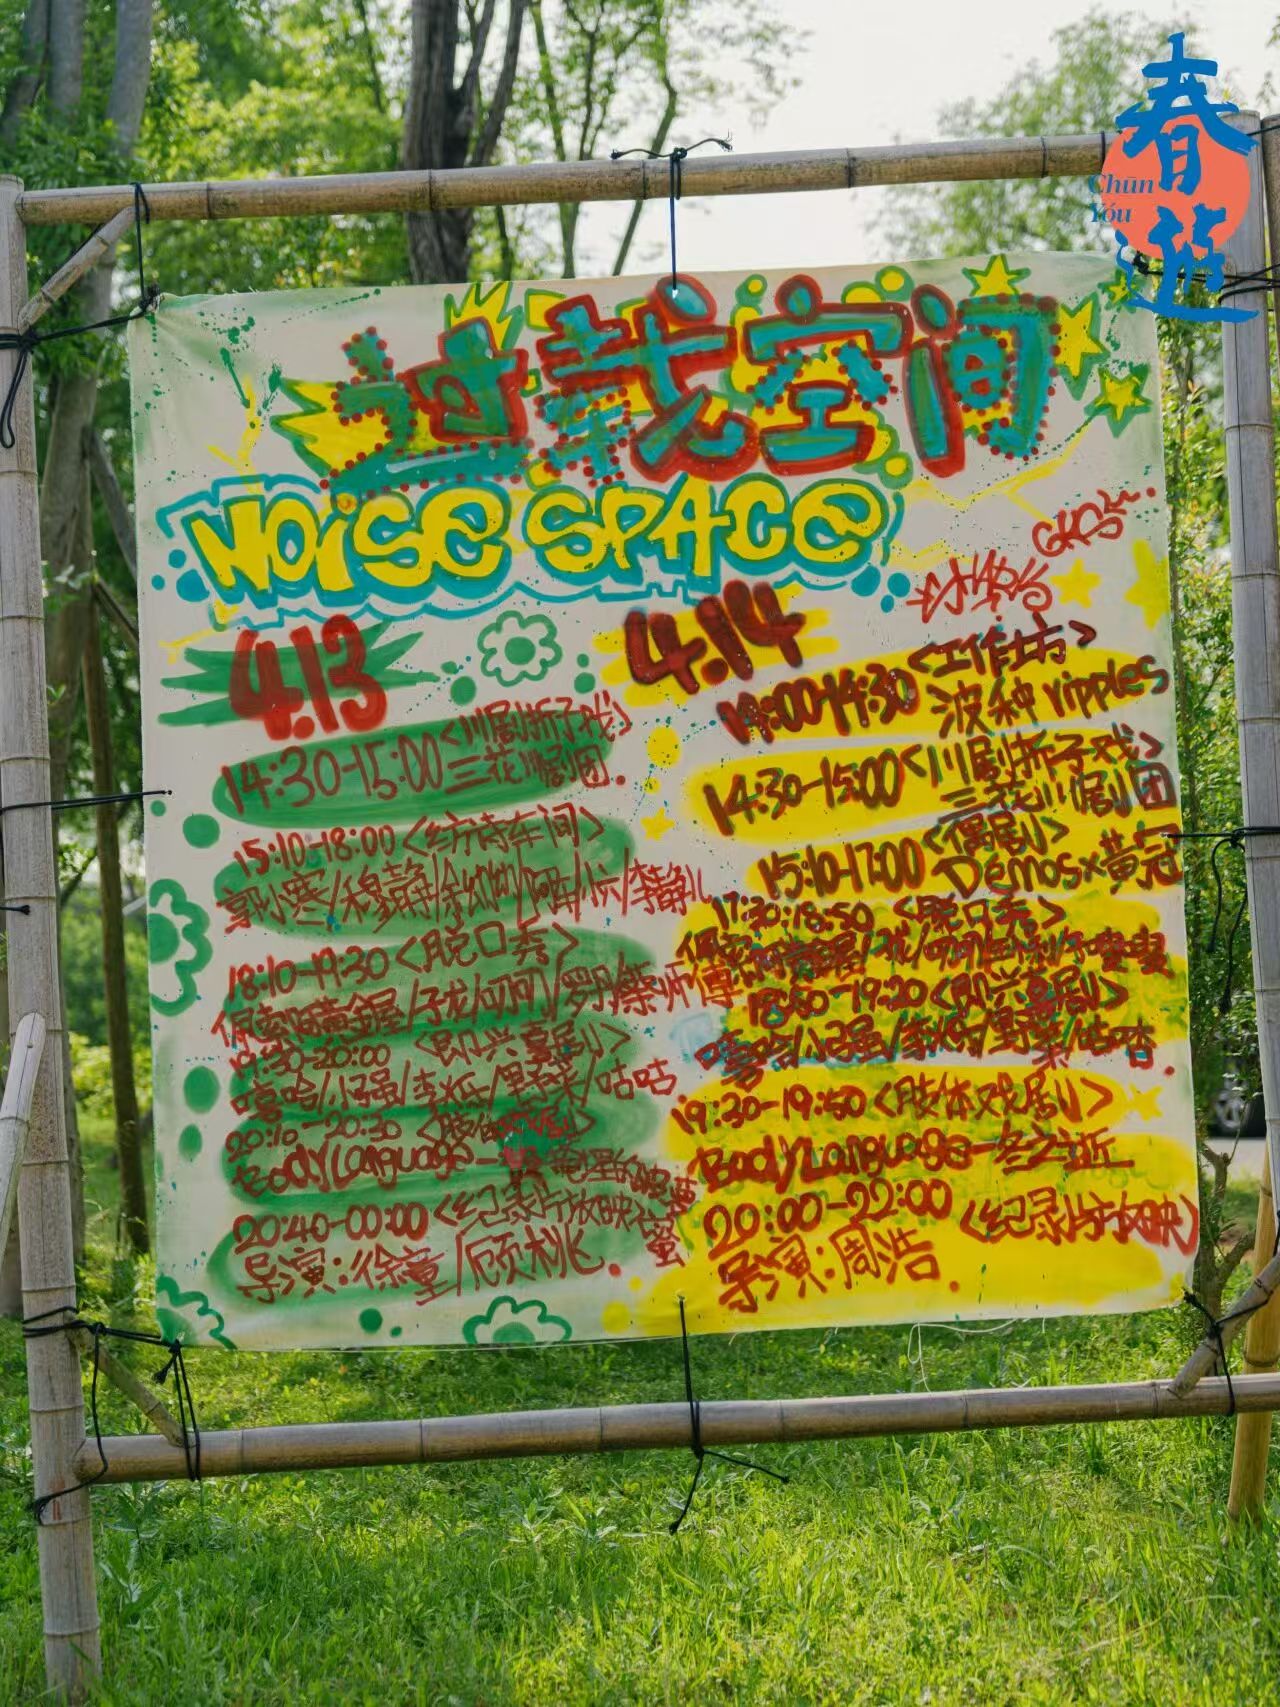 春游
Chūn
Yóu
过载空间
NOISE SPACE
4.13
14:30-15:00<川剧折子戏>
三花川剧团.
15:10-18:00<纺诗车间>
小寒/余幼幼/
18:10-19:30<脱口秀>
佩索/黄金屋/子龙/呵呵/罗丹/柴师傅
19:30-20:00 <即兴喜剧>
嘻哈/小强/李火乐/野菜/咕咕.
20:10-20:30 <肢体戏剧>
BodyLanguage一
20:40-00:00<纪录片放映>
导演:徐童/顾桃.
4.14
14:00-14:30<工作坊>
波种ripples
14:30-15:00<川剧折子戏>
三花川剧团
15:10-17:00<偶剧>
Demos×黄冠
17:30:18:50 <脱口秀>
佩索/黄金屋/子龙/呵呵/
18:50-19:20<即兴喜剧>
嘻哈/小强/李火乐/野菜/咕咕.
19:30-19:50<肢体戏剧>
BodyLanguage一冬之逝
20:00-22:00<纪录片放映>
导演:周浩.